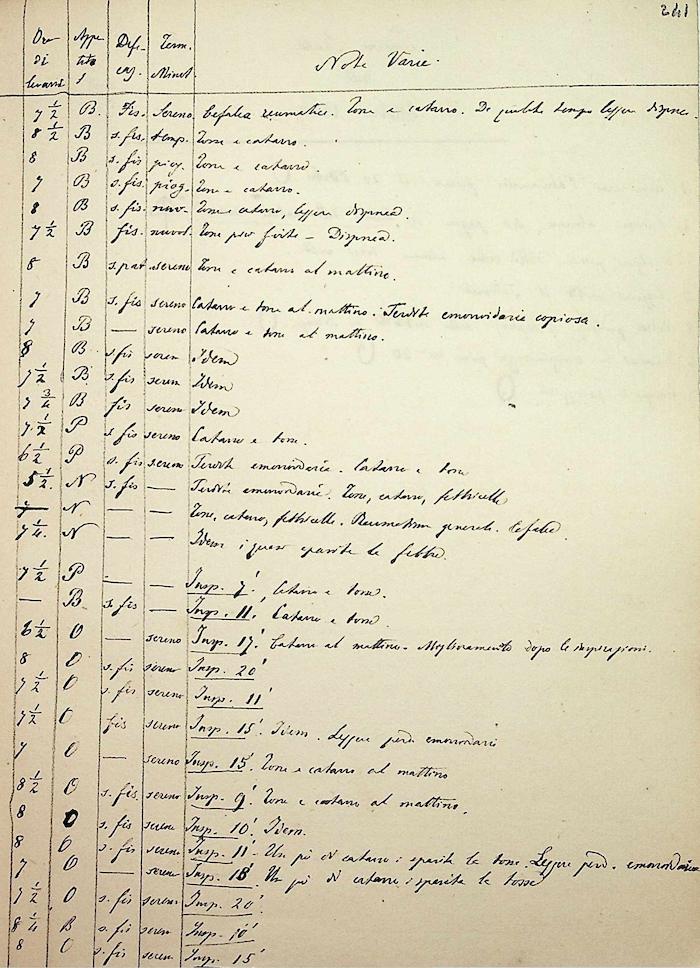 241
Ora di levarsi Appetito Defecaz. Term. Minet. Note Varie.
7 1/2 B. Fis. Sereno Cefalea reumatica. Tosse e catarro. Da qualche tempo leggera dispnea.
8 1/2 B s. fis. temp. Tosse e catarro.
8 B s. fis piog. Tosse e catarro
7 B s. fis. piog. Tosse e catarro.
8 B s. fis nuv. Tosse e catarro, leggera dispnea.
7 1/2 B fis. nuvol. Tosse più forte – Dispnea.
8 B s. pat sereno Tosse e catarro al mattino.
7 B s. fis sereno Catarro e tosse al mattino. Perdite emorroidarie copiosa.
7 B — sereno Catarro e tosse al mattino.
8 B s. fis seren Idem
7 1/2 B s. fis seren Idem
7 3/4 B fis seren Idem
7 1/2 P s. fis sereno Catarro e tosse.
6 1/2 P s. fis. sereno Perdite emorroidarie. Catarro e tosse
5 1/2. N s. fis — Perdite emorroidarie. Tosse, catarro, febbricelle
7 N. — — Tosse, catarro, febbricelle. Reumatismo generale. Cefalea.
7 1/4. N — — Idem; quasi sparita la febbre.
7 1/2 P — — Insp. 7'. Catarro e tosse.
— B s. fis — Insp. 11'. Catarro e tosse
6 1/2 O — sereno Insp. 17'. Catarro al mattino. Miglioramento dopo le inspirazioni.
8 O s. fis sereno Insp. 20'
7 1/2 O s. fis sereno Insp. 11'
7 1/2 O fis sereno Insp. 15'. Idem. Leggere perd. emorroidarie
7 O — sereno Insp. 15'. Tosse e catarro al mattino
8 1/2 O s. fis. sereno Insp. 9'. Tosse e catarro al mattino.
8 O s. fis sereno Insp. 10'. Idem.
8 O s. fis sereno Insp. 11'. Un pò di catarro; sparita la tosse. Leggere perd. emorroidarie
7 O — sereno Insp. 18'. Un pò di catarro; sparita la tosse
7 1/2 O s. fis sereno Insp. 20'.
8 1/4 B s. fis sereno Insp. 10'
8 O s. fis sereno Insp. 15'